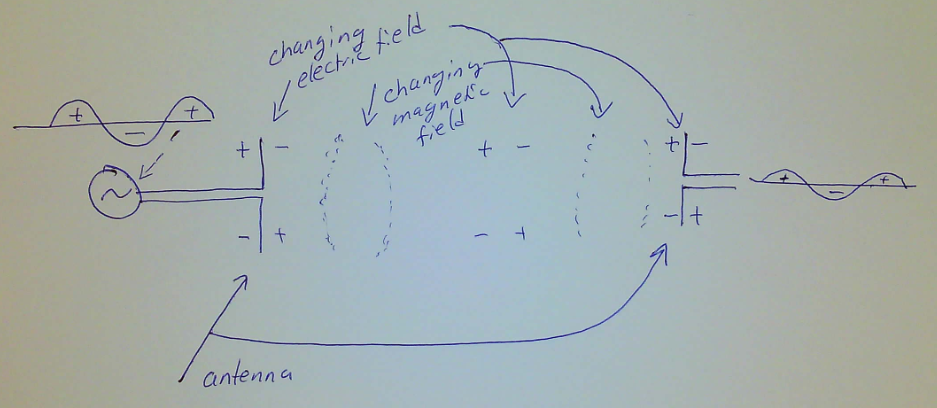 changing
electric field
changing
magnetic
field
+ +
−
~
+ − + − + −
− + − + − +
+ +
−
antenna